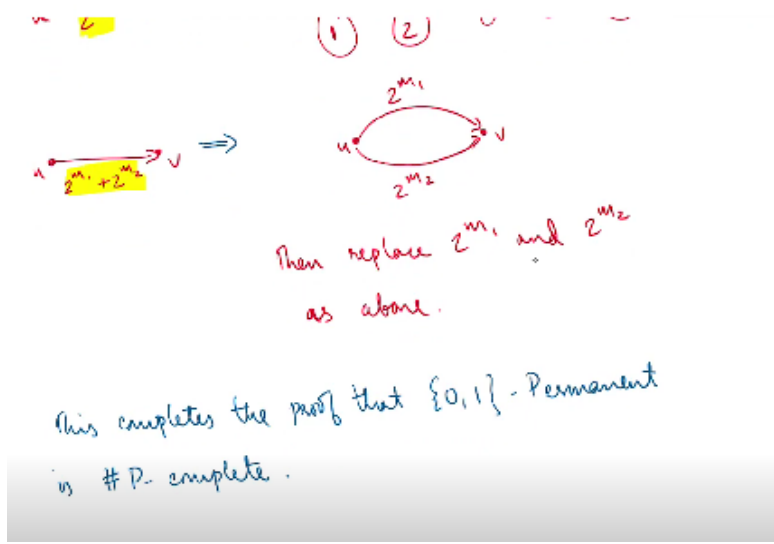 u 2
1 2
2^m1
u v ⇒ u v
2^m1 + 2^m2
2^m2
Then replace 2^m1 and 2^m2
as above.
This completes the proof that {0,1} - Permanent
is #P- complete.